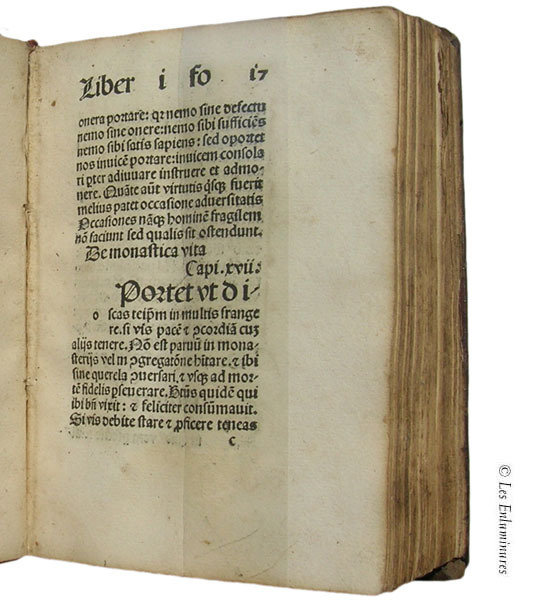 Liber i fo i7
onera portare: qr nemo sine defectu
nemo sine onere: nemo sibi sufficiēs
nemo sibi satis sapiens: sed oportet
nos invicē portare: invicem consola
ri pter adiuuare instruere et admo-
nere. Quāte aūt virtutis qsqꝫ fuerit
melius patet occasione adversitatis
Occasiones nāqꝫ hominē fragilem
nō faciunt sed qualis sit ostendunt.
De monastica vita
Capi. xvii.
Portet vt di-
o scas teip̄m in multis frange
re. si vis pacē ⁊ ꝯcordiā cuꝫ
alijs tenere. Nō est parvū in mona-
sterijs vel in ꝯgregatōne hītare. ⁊ ibi
sine querela ꝯversari. ⁊ vsqꝫ ad mor-
tē fidelis pseuerare. Btūs quidē qui
ibi bn̄ vixit: ⁊ feliciter consūmavit.
Si vis debite stare ⁊ ꝓficere teneas
c
© Les Enluminures